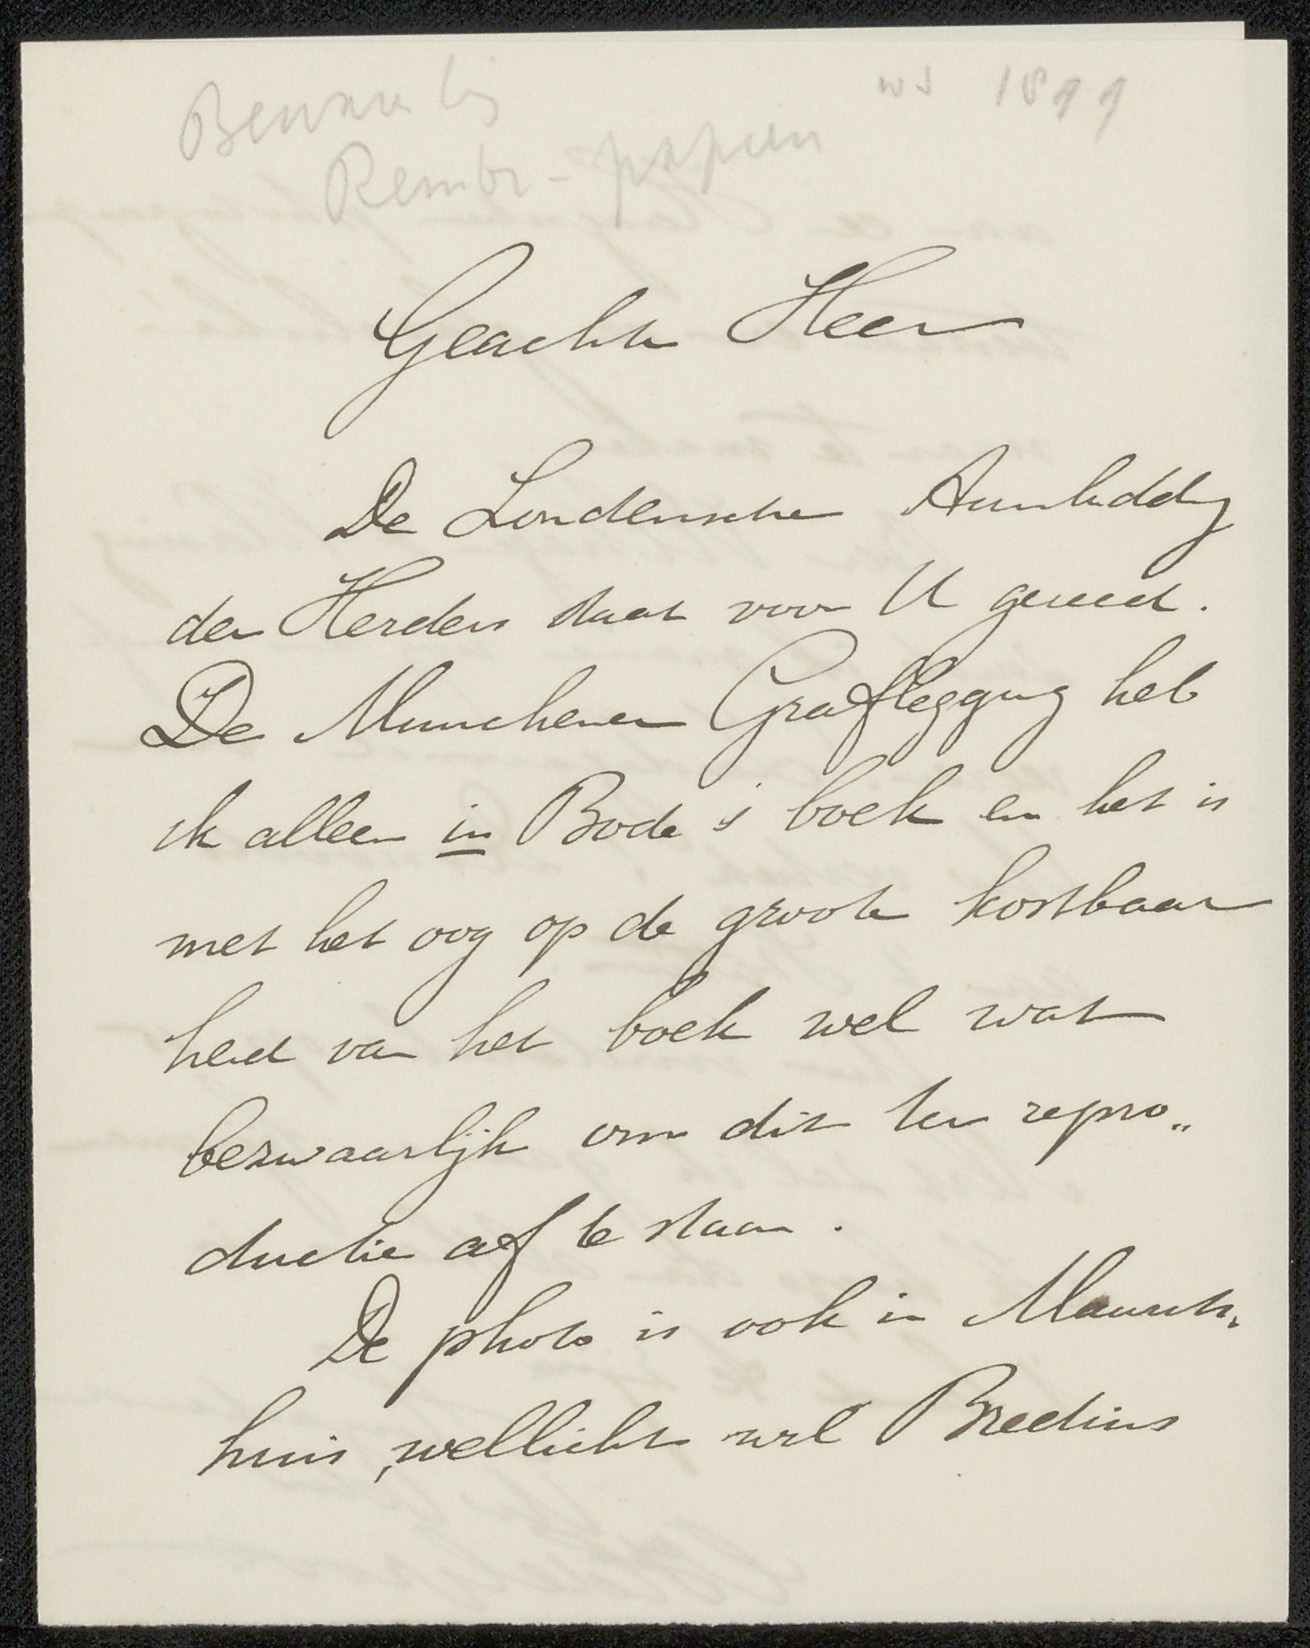 ws 1899
Bewaar bij
Rembr - papieren
Geachte Heer
De Londensche Aanbidding
der Herders staat voor U gereed.
De Munchener Graflegging heb
ik alleen in Bode's boek en het is
met het oog op de groote kostbaar
heid van het boek wel wat
bezwaarlijk om dit ter repro„
ductie af te staan.
De photo is ook in Maurits,
huis, wellicht wil Bredius